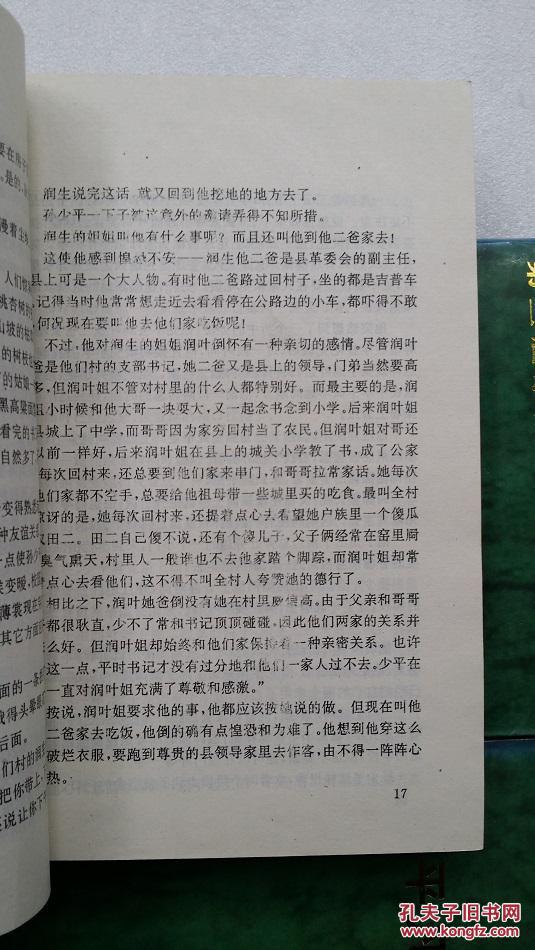 润生说完这话 就又回到他挖地的地方去了。
孙少平一下子被这意外的邀请弄得不知所措。
润生的姐姐叫他有什么事呢？而且还叫他到他二爸家去！
这使他感到惶恐不安——润生他二爸是县革委会的副主任，
县上可是一个大人物。有时他二爸路过回村子，坐的都是吉普车
记得当时他常常想走近去看看停在公路边的小车，都吓得不敢
何况现在要叫他去他们家吃饭呢！
不过，他对润生的姐姐润叶倒怀有一种亲切的感情。尽管润叶
爸是他们村的支部书记，她二爸又是县上的领导，门弟当然要高
多，但润叶姐不管对村里的什么人都特别好。而最主要的是，润
且小时候和他大哥一块耍大，又一起念书念到小学。后来润叶姐
县城上了中学，而哥哥因为家穷回村当了农民。但润叶姐对哥还
以前一样好，后来润叶姐在县上的城关小学教了书，成了公家
每次回村来，还总要到他们家来串门，和哥哥拉常家话。她每次
他们家都不空手，总要给他祖母带一些城里买的吃食。最叫全村
讶的是，她每次回村来，还提着点心去看望她户族里一个傻瓜
叹田二。田二自己傻不说，还有个傻儿子，父子俩经常在窑里屙
臭气熏天，村里人一般谁也不去他家踏个脚踪，而润叶姐却常
点心去看他们，这不得不叫全村人夸赞她的德行了。
相比之下，润叶她爸倒没有她在村里威信高。由于父亲和哥哥
都很耿直，少不了常和书记顶顶碰碰，因此他们两家的关系并
么好。但润叶姐却始终和他们家保持着一种亲密关系。也许
这一点，平时书记才没有过分地和他们一家人过不去。少平在
一直对润叶姐充满了尊敬和感激。”
按说，润叶姐要求他的事，他都应该按她说的做。但现在叫他
二爸家去吃饭，他倒的确有点惶恐和为难了。他想到他穿这么
破烂衣服，要跑到尊贵的县领导家里去作客，由不得一阵阵心
热。
17
孔夫子旧书网
www.kongfz.com